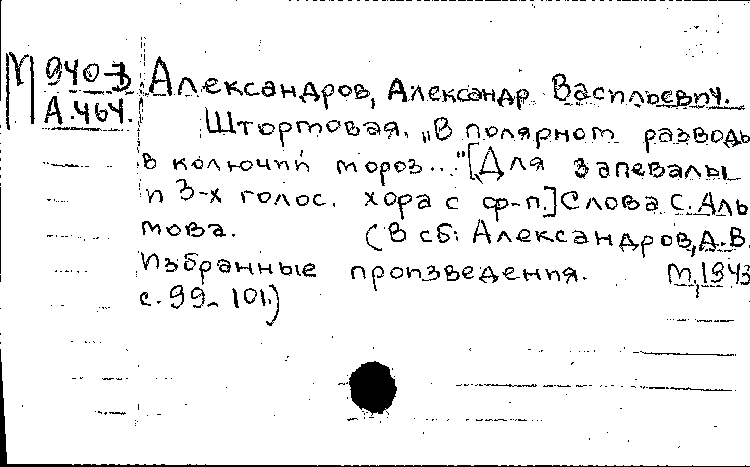 М 940-3 Александров, Александр Васильевич.
А.464. Штормовая. „В полярном разводь
в колючий мороз..." [Для запевалы
и 3-х голос. хора с ф-п.] Слова С. Аль
това. (В сб: Александров, А.В.
Избранные произведения. М, 1943
с. 99-101.)